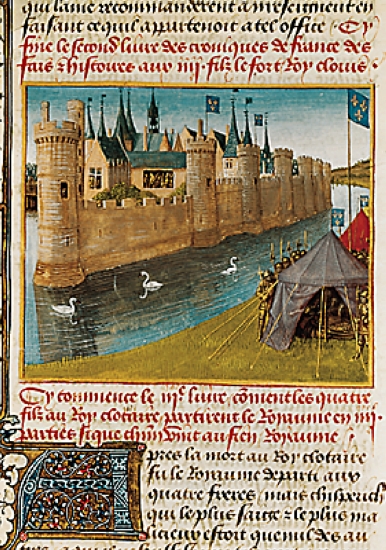 qui l'aime recommanderent a
faisant ce qui appartenoit a tel office Cy
fine le second livre des croniques de france des
fais & histoires aux iiij filz le fort Roy clovis
Cy commence le iije livre, coment les quatre
filz au Roy clotaire partirent le Royaume en iiij
parties si que chūn vint au sien Royaume
Apres la mort au Roy clotaire
fu le Royaume departi aux
quatre freres, mais chilperich
qui le plus saige & le plus ma
estoit que nul des au